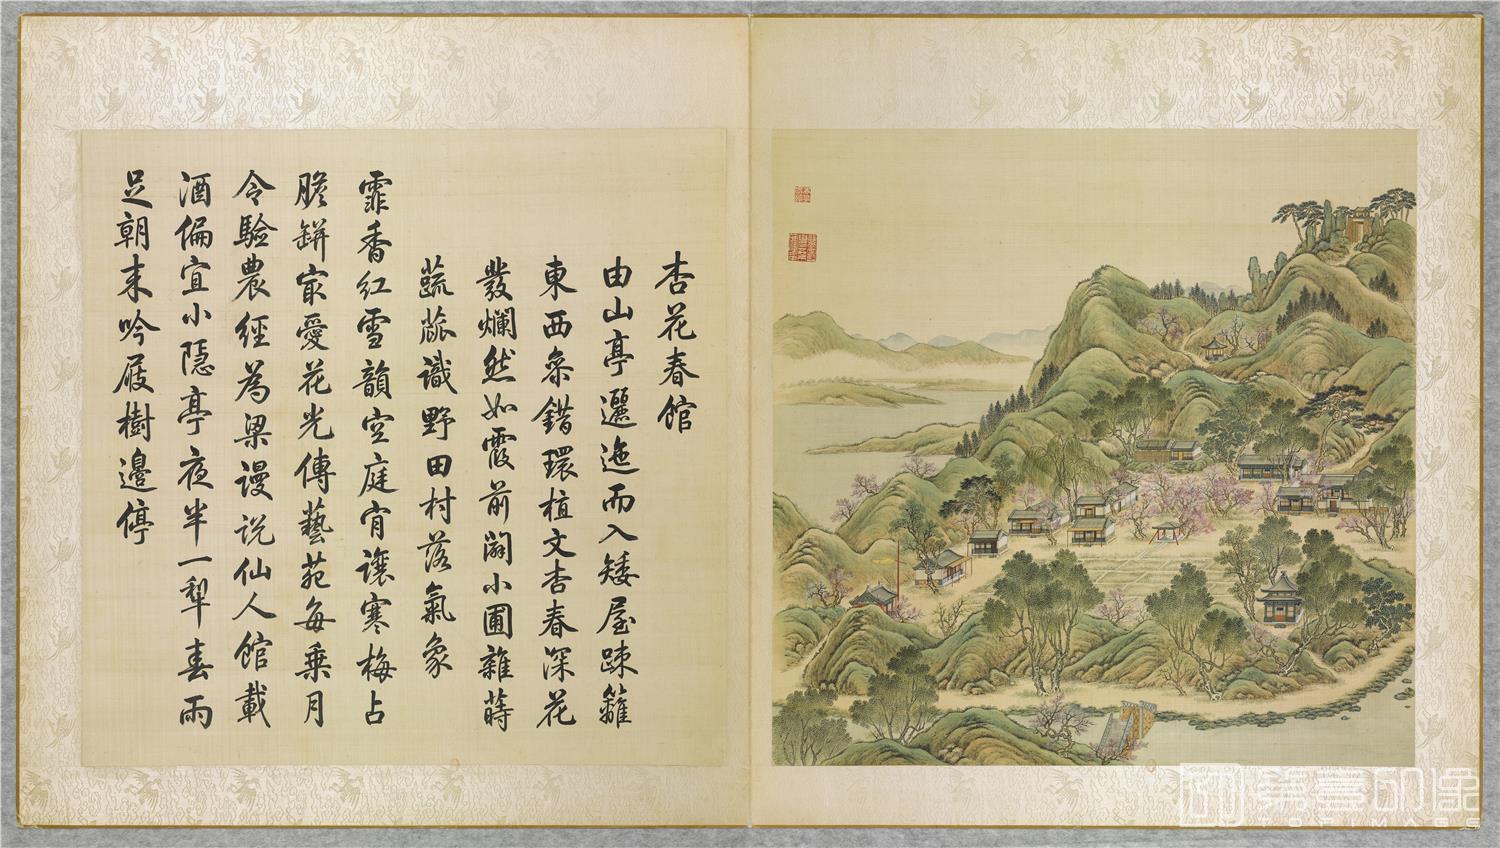 杏花春館
由山亭邐迤而入矮屋疎籬
東西叅錯環植文杏春深花
發爛然如霞前闢小圃雜蒔
蔬蓏識野田村落氣象
霏香紅雪韻空庭肯讓寒梅占
膽缾冣愛花光傳藝苑每乗月
令驗農經為梁謾説仙人館載
酒偏宜小隱亭夜半一犁春雨
足朝来吟屐樹邊停
TOPIMAGE